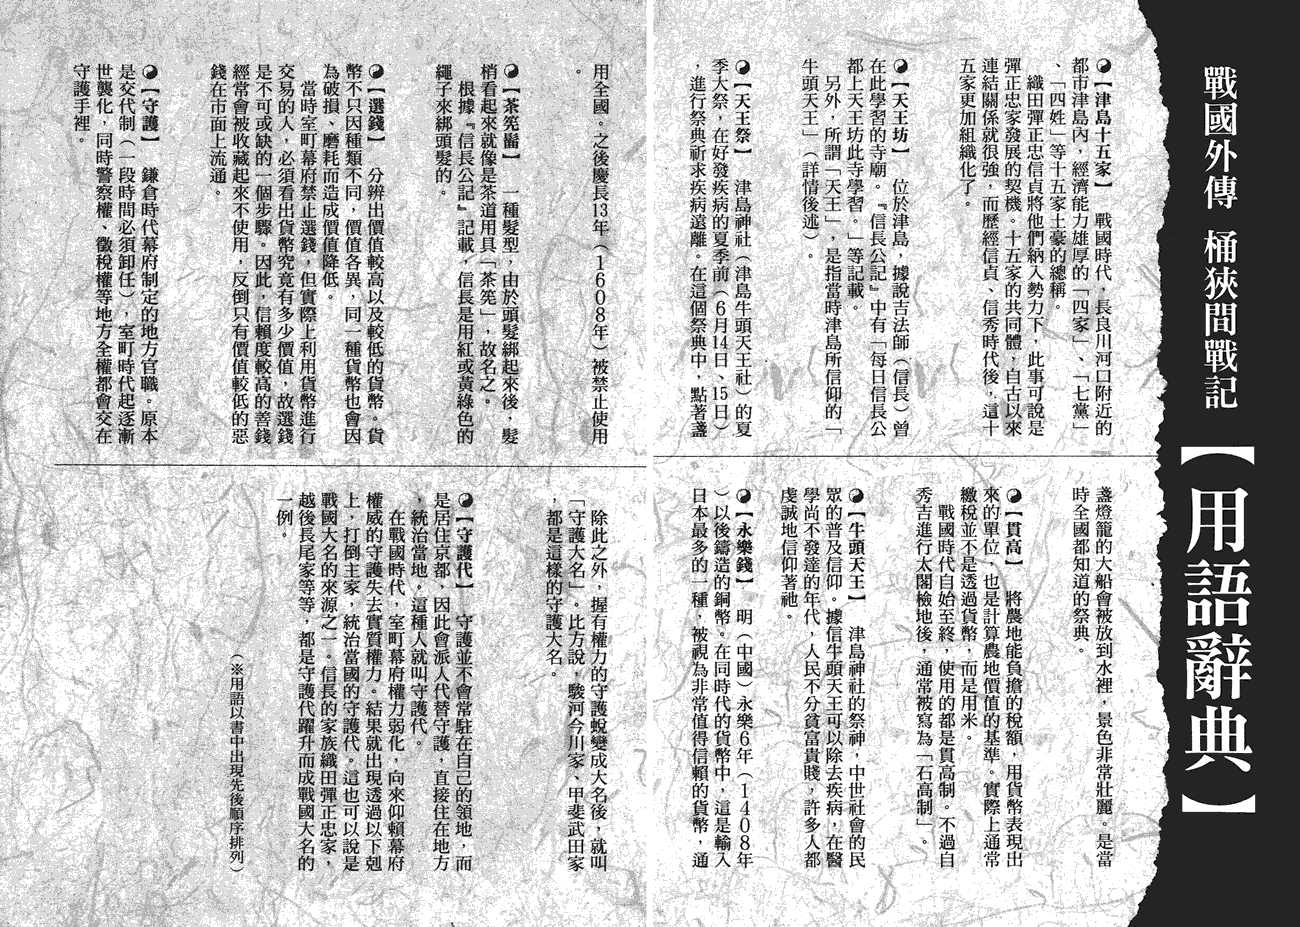 戰國外傳 桶狹間戰記
【用語辭典】
【津島十五家】 戰國時代，長良川河口附近的
都市津島內，經濟能力雄厚的「四家」、「七黨」
、「四姓」等十五家土豪的總稱。
織田彈正忠信貞將他們納入勢力下，此事可說是
彈正忠家發展的契機。十五家的共同體，自古以來
連結關係就很強，而歷經信貞、信秀時代後，這十
五家更加組織化了。
【天王坊】 位於津島，據說吉法師（信長）曾
在此學習的寺廟。『信長公記』中有「每日信長公
都上天王坊此寺學習。」等記載。
另外，所謂「天王」，是指當時津島所信仰的「
牛頭天王」（詳情後述）。
【天王祭】 津島神社（津島牛頭天王社）的夏
季大祭，在好發疾病的夏季前（6月14日、15日）
，進行祭典祈求疾病遠離。在這個祭典中，點著盞
盞燈籠的大船會被放到水裡，景色非常壯麗。是當
時全國都知道的祭典。
【貫高】 將農地能負擔的稅額，用貨幣表現出
來的單位，也是計算農地價值的基準。實際上通常
繳稅並不是透過貨幣，而是用米。
戰國時代自始至終，使用的都是貫高制。不過自
秀吉進行太閤檢地後，通常被寫為「石高制」。
【牛頭天王】 津島神社的祭神，中世社會的民
眾的普及信仰。據信牛頭天王可以除去疾病，在醫
學尚不發達的年代，人民不分貧富貴賤，許多人都
虔誠地信仰著祂。
【永樂錢】 明（中國）永樂6年（1408年
）以後鑄造的銅幣。在同時代的貨幣中，這是輸入
日本最多的一種，被視為非常值得信賴的貨幣，通
用全國。之後慶長13年（1608年）被禁止使用
。
【茶筅髷】 一種髮型，由於頭髮綁起來後，髮
梢看起來就像是茶道用具「茶筅」，故名之。
根據『信長公記』記載，信長是用紅或黃綠色的
繩子來綁頭髮的。
【選錢】 分辨出價值較高以及較低的貨幣。貨
幣不只因種類不同，價值各異，同一種貨幣也會因
為破損、磨耗而造成價值降低。
當時室町幕府禁止選錢，但實際上利用貨幣進行
交易的人，必須看出貨幣究竟有多少價值，故選錢
是不可或缺的一個步驟。因此，信賴度較高的善錢
經常會被收藏起來不使用，反倒只有價值較低的惡
錢在市面上流通。
【守護】 鎌倉時代幕府制定的地方官職。原本
是交代制（一段時間必須卸任），室町時代起逐漸
世襲化，同時警察權、徵稅權等地方全權都會交在
守護手裡。
除此之外，握有權力的守護蛻變成大名後，就叫
「守護大名」。比方說，駿河今川家、甲斐武田家
，都是這樣的守護大名。
【守護代】 守護並不會常駐在自己的領地，而
是居住京都，因此會派人代替守護，直接住在地方
，統治當地。這種人就叫守護代。
在戰國時代，室町幕府權力弱化，向來仰賴幕府
權威的守護失去實質權力。結果就出現透過以下剋
上，打倒主家，統治當國的守護代。這也可以說是
戰國大名的來源之一。信長的家族織田彈正忠家，
越後長尾家等等，都是守護代躍升而成戰國大名的
一例。
（※用語以書中出現先後順序排列）